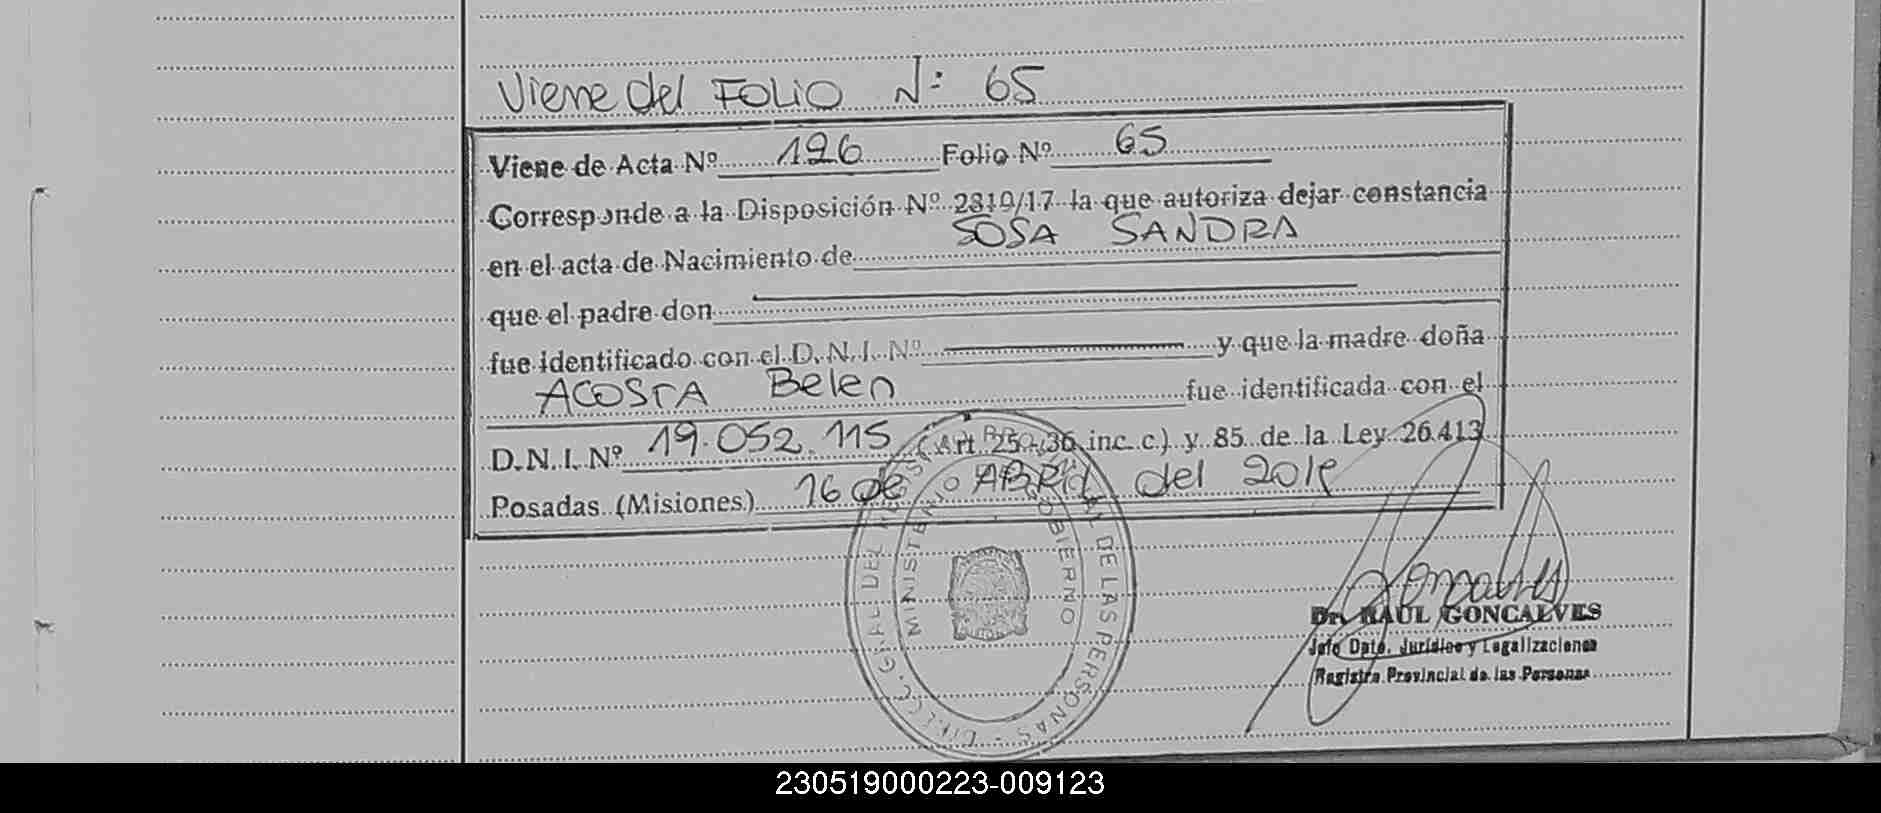 Viene del FOLIO N: 65
Viene de Acta Nº 126 Folio Nº 65
Corresponde a la Disposición Nº 2819/17 la que autoriza dejar constancia
en el acta de Nacimiento de SOSA SANDRA
que el padre don
fue identificado con el D. N. I. Nº y que la madre doña
ACOSTA Belen fue identificada con el
D. N. I. Nº 19.052.115 (Art. 250-36 inc. c.) y 85 de la Ley 26.413
Posadas (Misiones) 16 de ABRIL del 2018
MINISTERIO GOBIERNO
GRAL DEL DE LAS PERSONAS
Dr. RAUL GONCALVES
Jefe Dpto. Jurídico y Legalizaciones
Registro Provincial de las Personas
230519000223-009123